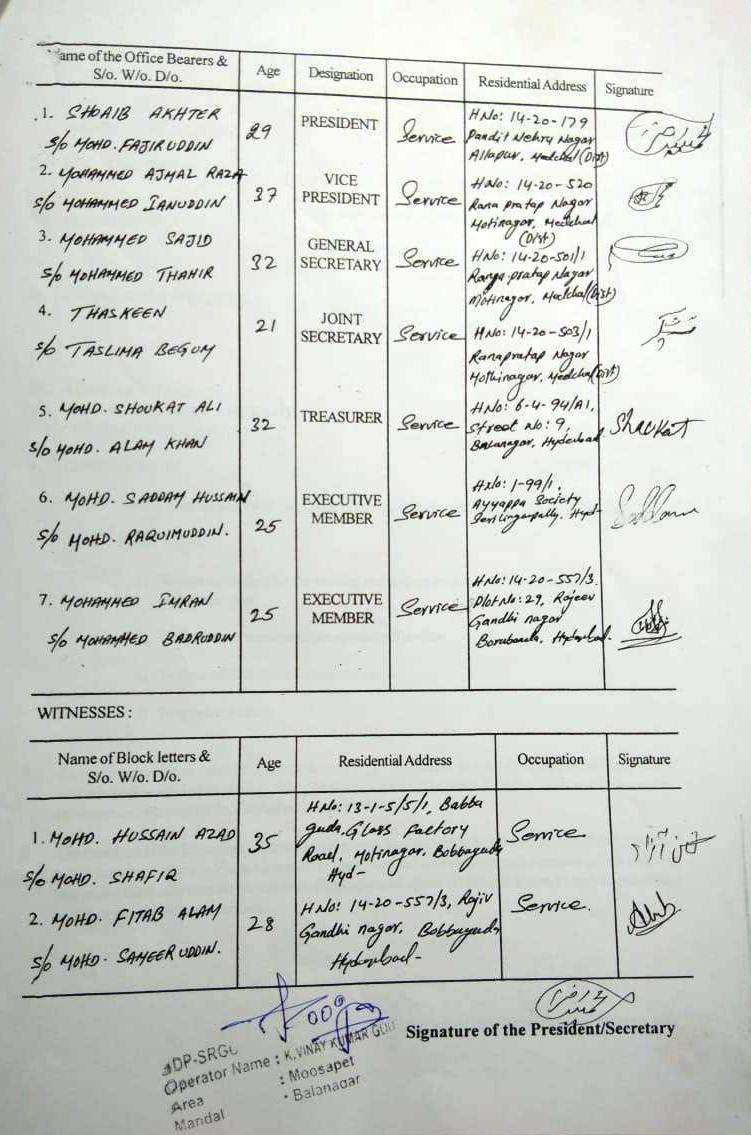 ame of the Office Bearers &
S/o. W/o. D/o.
Age
Designation
Occupation
Residential Address
Signature
1. SHOAIB AKHTER
S/o MOHD. FAJIRUDDIN
29
PRESIDENT
Service
HNo: 14-20-179
Pandit Nehru Nagar
Allapur, Medchal (Dist)
2. MOHAMMED AJMAL RAZA
S/o MOHAMMED IANUDDIN
37
VICE
PRESIDENT
Service
HNo: 14-20-520
Rana pratap Nagar
Motinagar, Medchal
(Dist)
3. MOHAMMED SAJID
S/o MOHAMMED THAHIR
32
GENERAL
SECRETARY
Service
HNo: 14-20-501/1
Ranga pratap Nagar
Motinagar, Medchal (Dist)
4. THASKEEN
S/o TASLIMA BEGUM
21
JOINT
SECRETARY
Service
HNo: 14-20-503/1
Ranapratap Nagar
Mothinagar, Medchal (Dist)
5. MOHD. SHOUKAT ALI
S/o MOHD. ALAM KHAN
32
TREASURER
Service
HNo: 6-4-94/A1,
Street No: 9,
Balanagar, Hyderabad
Shaukat
6. MOHD. SADDAM HUSSAIN
S/o MOHD. RAQUIMUDDIN.
25
EXECUTIVE
MEMBER
Service
HNo: 1-99/1,
Ayyappa Society
Serilingampally, Hyd-
Saddam
7. MOHAMMED IMRAN
S/o MOHAMMED BADRUDDIN
25
EXECUTIVE
MEMBER
Service
HNo: 14-20-557/3.
Plot No: 29, Rajeev
Gandhi nagar
Borabanda, Hyderabad.
WITNESSES :
Name of Block letters &
S/o. W/o. D/o.
Age
Residential Address
Occupation
Signature
1. MOHD. HUSSAIN AZAD
S/o MOHD. SHAFIQ
35
H No: 13-1-5/5/1, Babba
guda, Glass Factory
Road, Motinagar, Bobbaguda
Hyd-
Service
حسین آزاد
2. MOHD. FITAB ALAM
S/o MOHD. SAMEERUDDIN.
28
H No: 14-20-557/3, Rajiv
Gandhi nagar, Bobbaguda
Hyderabad-
Service.
Signature of the President/Secretary
DP-SRGC
Operator Name : K.VINAY KUMAR GOU
Area : Moosapet
Mandal : Balanagar